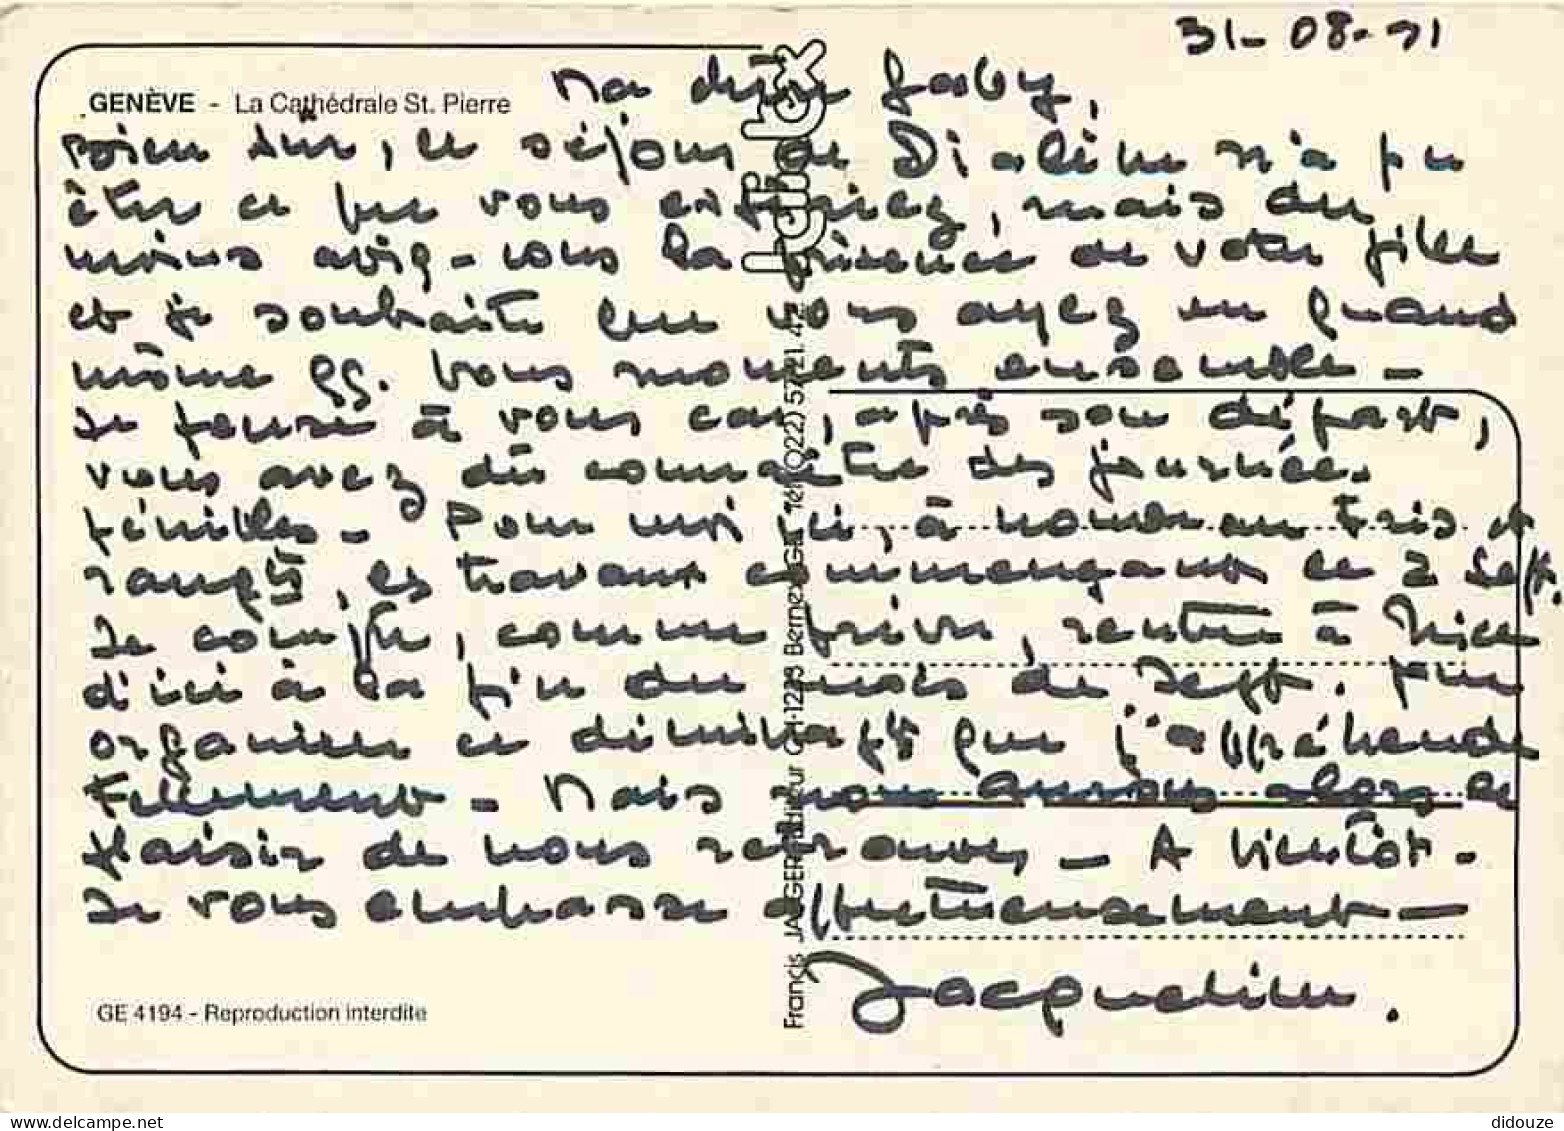 31-08-91
GENÈVE - La Cathédrale St. Pierre
Ma chère Gaby,
Bien sûr, ce séjour de n'a pu
être ce que vous espériez, mais du
moins aviez-vous la présence de votre fille
et je souhaite que vous ayez eu quand
même qq. bons moments ensemble -
Je pense à vous car, après son départ,
vous avez dû connaître des journées
pénibles - Pour moi ici, à nouveau
rangts, les travaux commençant le 2 Sept.
Je compte, comme prévu, rentrer à Nice
d'ici à la fin du mois de Sept. pour
organiser ce déménagt que j'appréhende
tellement - Mais nous aurons alors le
plaisir de nous retrouver - A bientôt -
Je vous embrasse affectueusement -
Jacqueline.
GE 4194 - Reproduction interdite
Francis JAEGER Editeur CH-1233 Bernex-GE Tél. (022) 57 21 42
delcampe.net
didouze